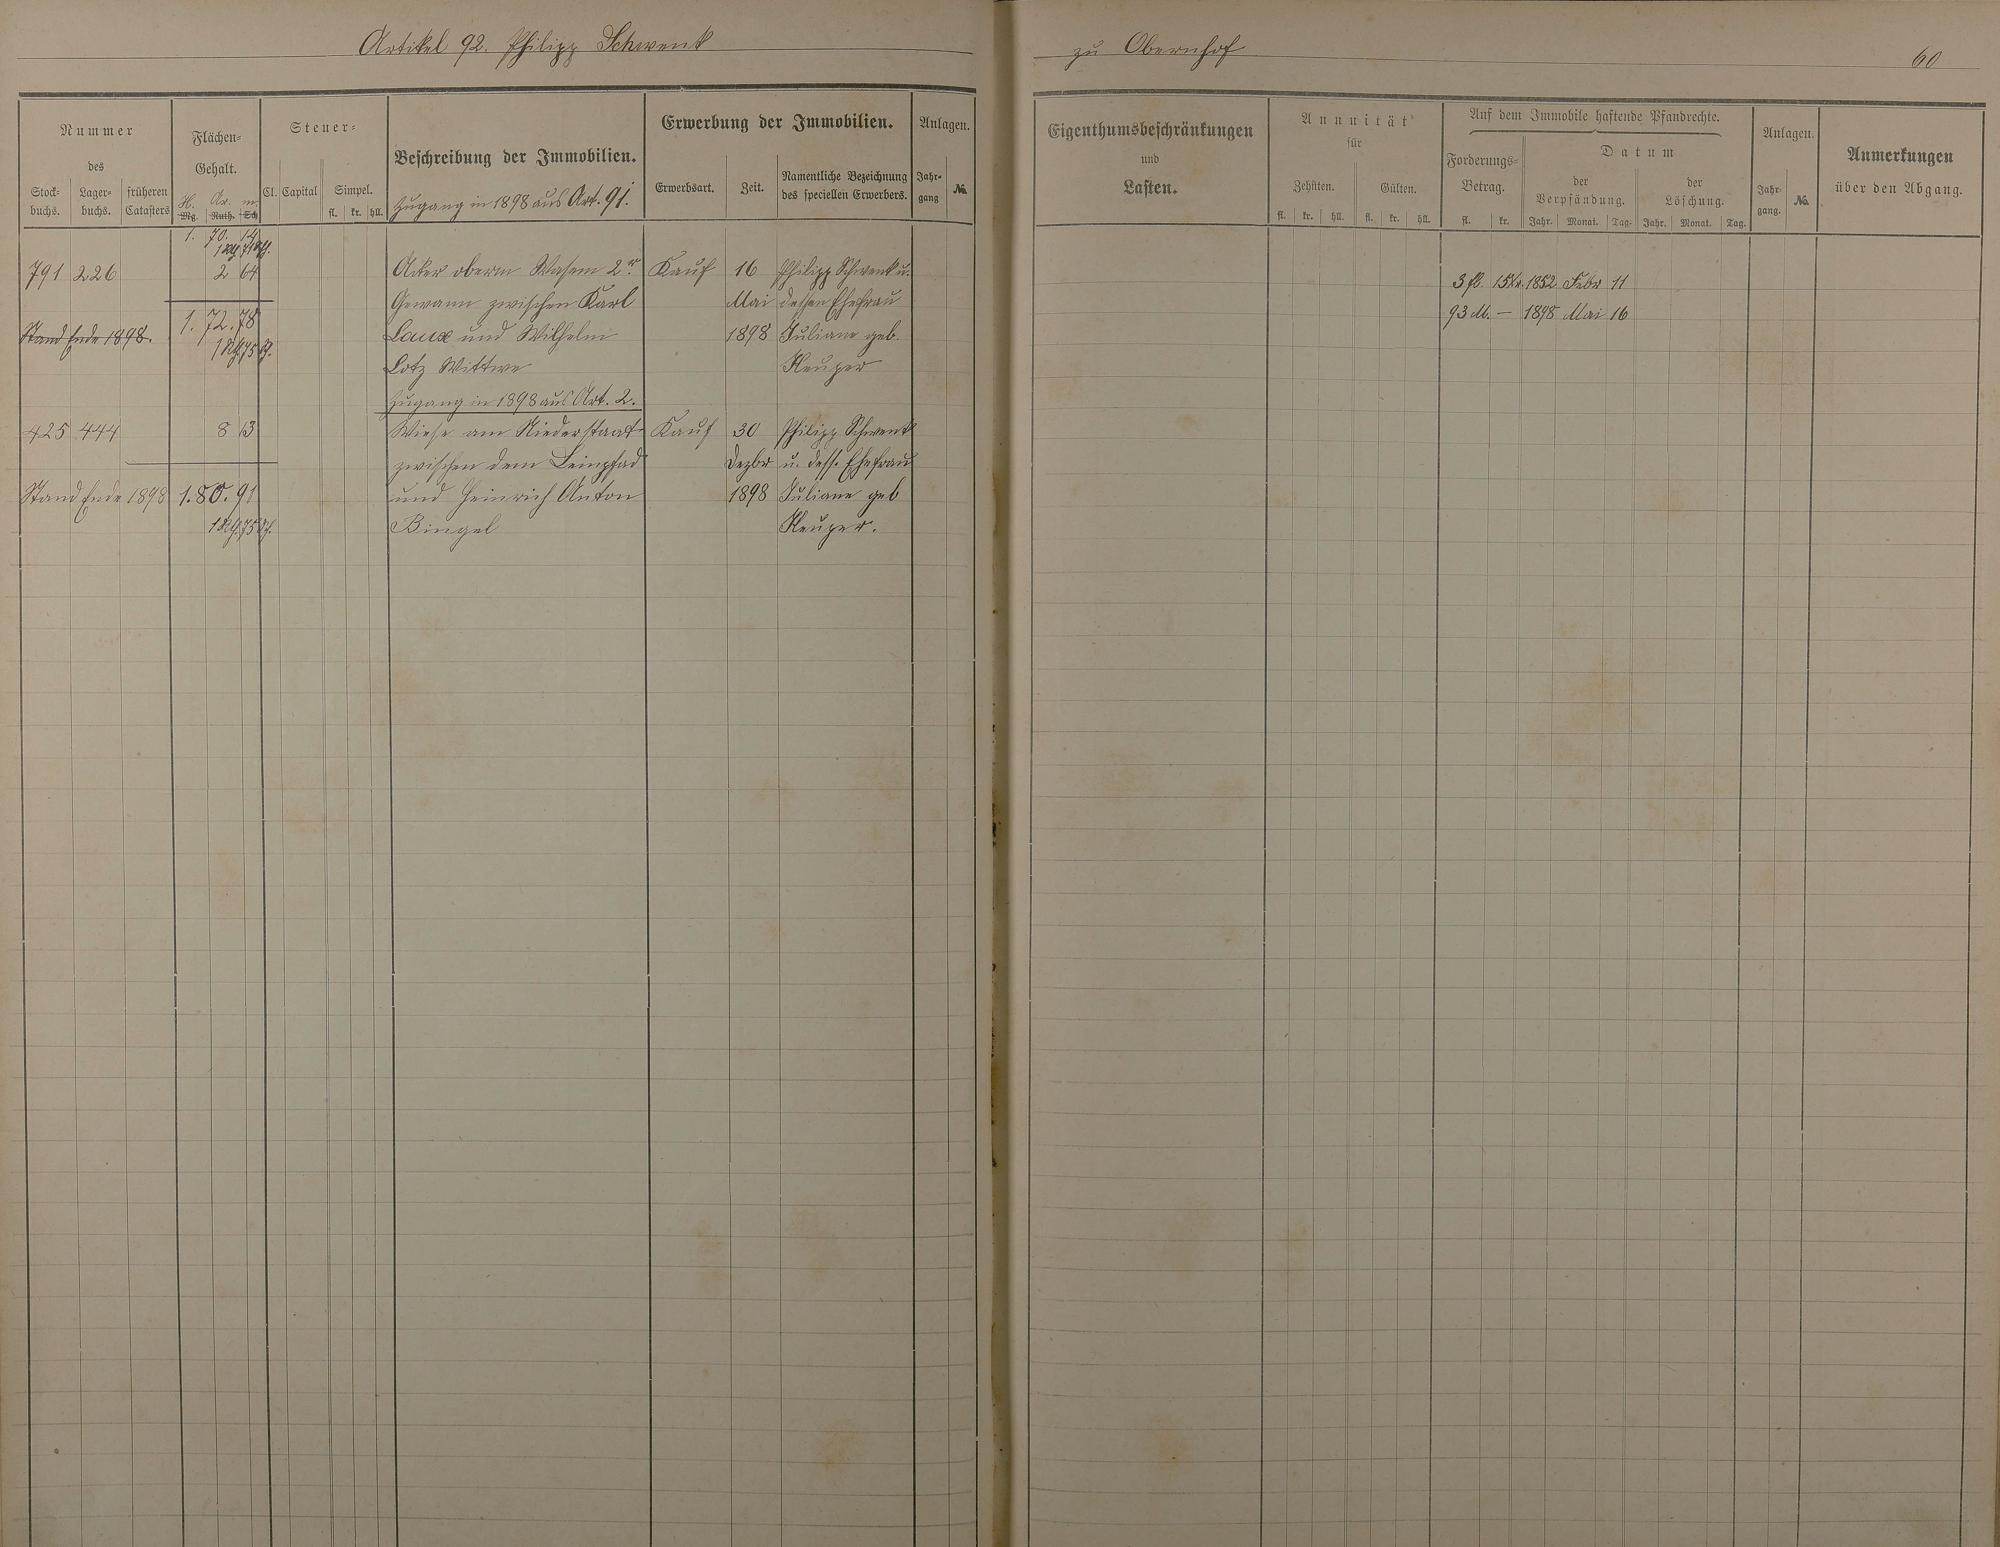 Artikel 92. Philipp Schwenk
zu Obernhof
60
Nummer
des
Stock-
buchs.
Lager-
buchs.
früheren
Catasters
Flächen-
Gehalt.
H. Ar. m.
Mg. Ruth. Sch
Steuer-
Cl. Capital Simpel.
fl. kr. hll.
Beschreibung der Immobilien.
Zugang in 1898 aus Art. 91.
Erwerbung der Immobilien.
Erwerbsart. Zeit.
Namentliche Bezeichnung
des speciellen Erwerbers.
Anlagen.
Jahr-
gang
No.
Eigenthumsbeschränkungen
und
Lasten.
Annuität
für
Zehnten. Gülten.
fl. kr. hll. fl. kr. hll.
Auf dem Immobile haftende Pfandrechte.
Forderungs-
Betrag.
fl. kr.
Datum
der
Verpfändung.
Jahr. Monat. Tag.
der
Löschung.
Jahr. Monat. Tag.
Anlagen.
Jahr-
gang.
No.
Anmerkungen
über den Abgang.
1. 70. 14
791 226 2 64 Acker oberm Wasem 2r Kauf 16 Philipp Schwenk u. 3 fl. 15 kr. 1852 Febr 11
Gewann zwischen Karl Mai dessen Ehefrau 93 M. — 1898 Mai 16
1. 72. 78
Stand Ende 1898. Laux und Wilhelm 1898 Juliane geb.
Lotz Wittwe Neuzer
Zugang in 1898 aus Art. 2.
425 444 8 13 Wiese am Niederstaat Kauf 30 Philipp Schwenk
zwischen dem Leinpfad Dezbr u. dess. Ehefrau
Stand Ende 1898 1. 80. 91 und Heinrich Anton 1898 Juliane geb
Bingel Neuzer.